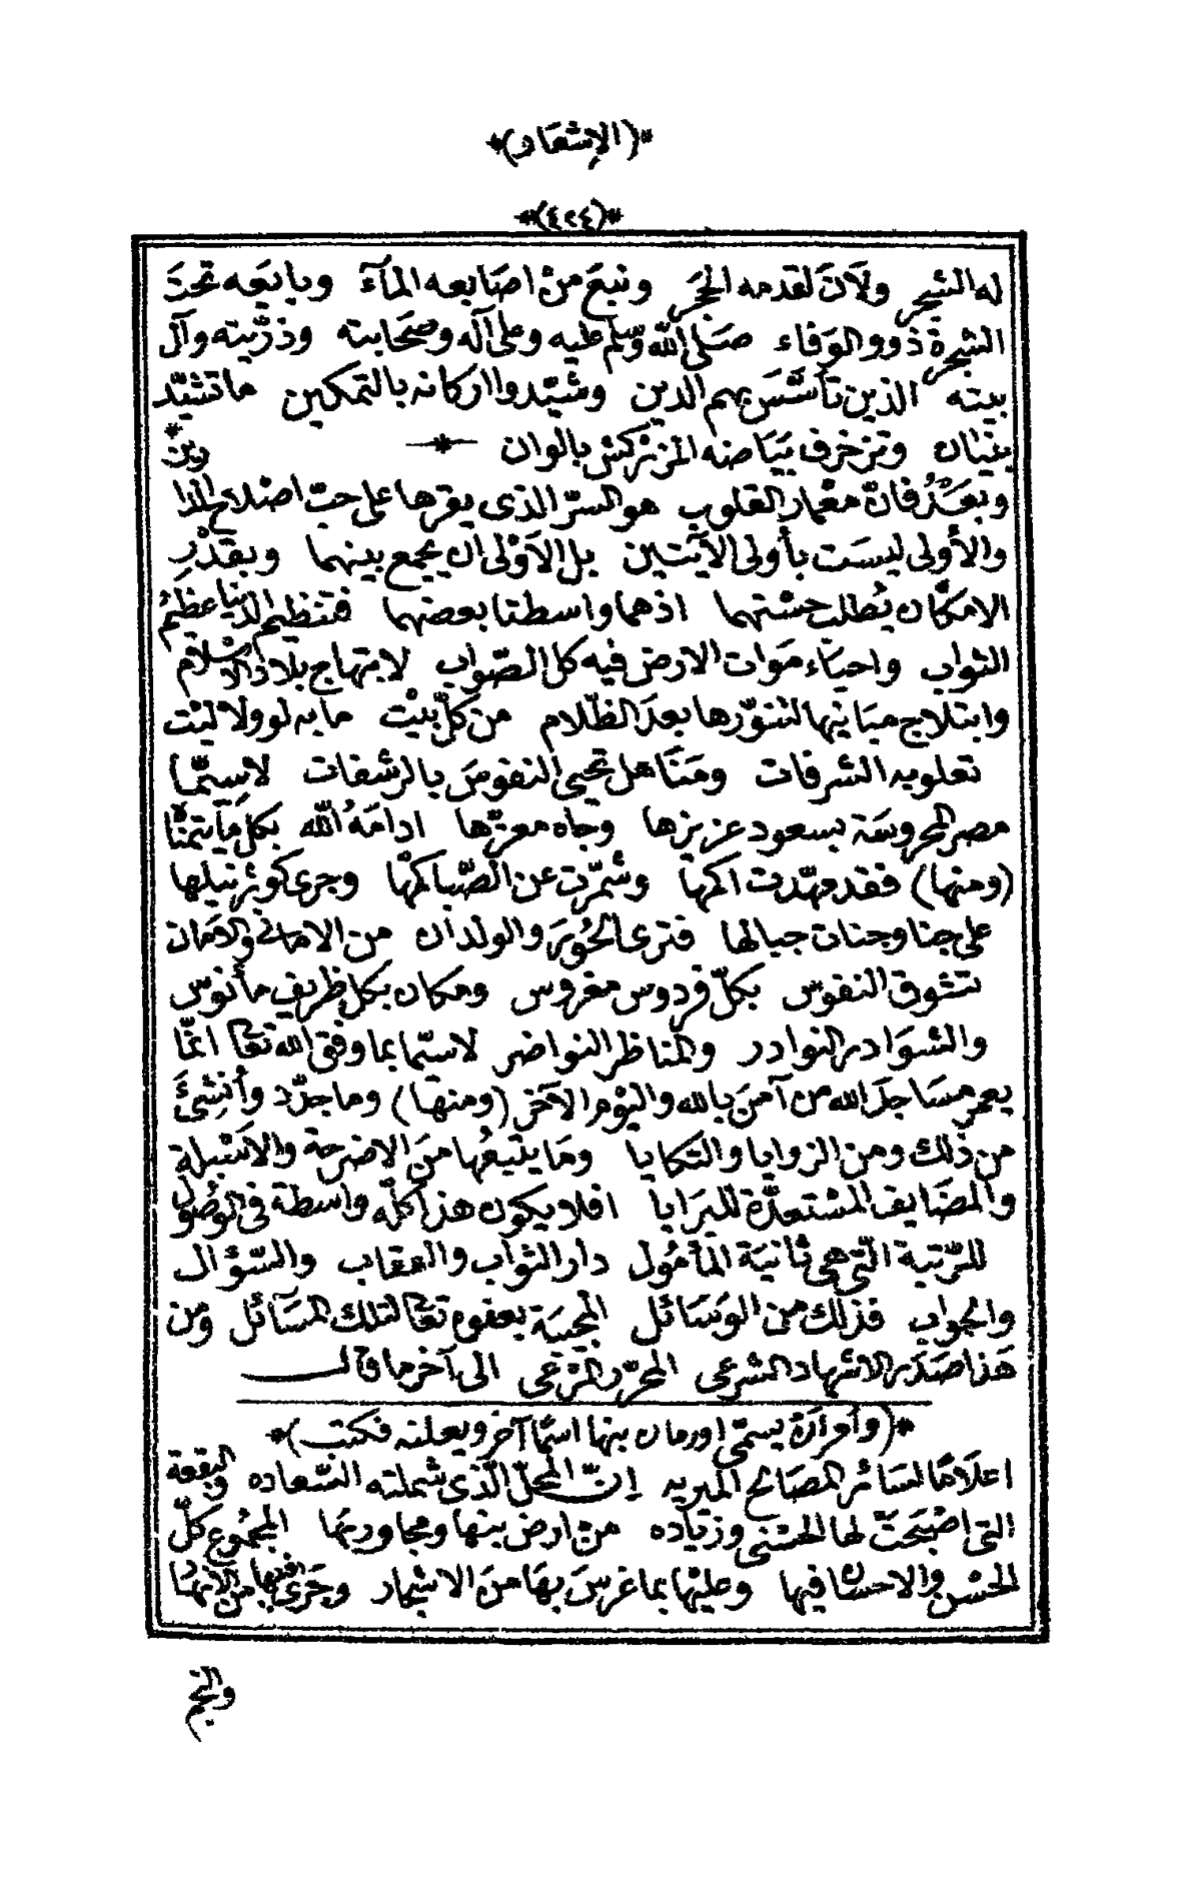 *(الإشعار)*
*(٤٢٤)*
له الشجر ولَانَ لقدمه الحَجَر ونبعَ منْ اصَابعه المآءُ وبايَعه تحتَ
الشجرة ذوو الوَفاء صَلى اللّه وسلّم عليه وعلى آله وصحَابته وذرّيته وآل
بيته الذين تأسّسَ بهم الدين وشيّدوا اركانه بالتمكين ما تشيّد
بنيان وتزخرف بيَاضه المزركش بالوان
وبَعَدُ فانّ معْمار القلوب هو السرّ الذى يقرها على حبّ اصْلاح الدارين
والأولى ليسَت بأولى الآيتين بل الاَوْلى ان يجمع بينهما وبقَدْرِ
الامكان يُطلب حسْنهما اذ هما واسطتا بعضهما فتنظيم الدنيا عظيمُ
الثواب واحيَاء مَوات الارض فيه كل الصّواب لابتهاج بلاد الاسْلام
وابتلاج مبَانيها لتنوّرها بعدَ الظّلام من كلّ بيْت ما به لو ولا ليْت
تعلو به الشرفات ومَنَاهل تحيى النفوسَ بالرشفات لاسيّما
مصر المحروسَة بسعود عزيزها وجاه معزّها ادامَهُ اللّه بكل مَا يتمنّا
(ومنها) فقد مهّدت اكمها وشمّرت عن الصّبا كمّها وجرى كوثر نيلها
على جنا وجنات جبالها فترى الحُورَ والولدان من الامانى والامَان
تتشوق النفوس بكلّ فردوس مغروس ومكان بكل ظريف مأنوس
والشوَادر النوادر والمناظر النواضر لاسيّما بما وفق الله تعالى انّما
يعمر مسَاجدَ الله من آمنَ بالله واليَوْم الآخر (ومنها) وما جدّد وأُنشِئَ
من ذلك ومن الزوايا والتكايا ومَا يتبعُها منَ الاضرحة والاسْبلة
والمضَايف المسْتعدّة للبرَايا افلا يكون هذا كلّه واسطة فى الوصُول
للرّتبة التّى هى ثانيَة المأمُول دار الثواب والعقاب والسّؤال
والجواب فذلك من الوَسَائل المجيبَة بعفوه تعالى لتلك المسَآئل ومن
هَذا صَدَر الاشهاد الشرعى المحرّر المرْعى الى آخر ما قال
*(وأمرَارَهَ يسمّى اورمان بنها اسمًا آخر ويعلنه فكتب)*
اعلَامًا لسَائر المصَالح الميريه إنّ المحلّ الّذى شملته السّعاده والبقعة
التى اصْبحَتْ لها الحسْنى وزيَاده منْ ارض بنها ومجاورتها المجمُوع كلّ
الحسْن والاحسان فيها وعليْها بما غرسَ بهَا منَ الاشجار وجَرى فيها منَ الانهَار
والنجم